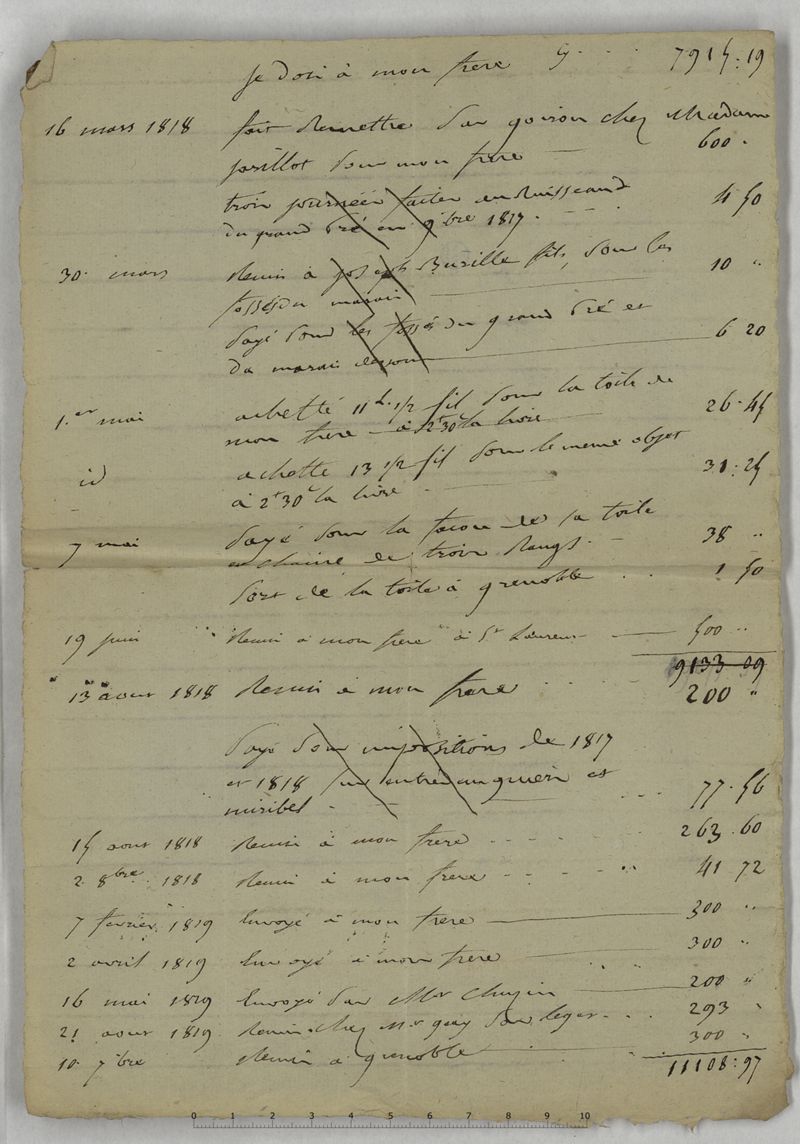 Je dois à mon frere 7915:19
16 mars 1818 fait Remettre par goiron chez Madame
josillot pour mon frere 600 "
trois journées faites au Ruisseaud
du grand Pré en 9bre 1817. 4 50
30 mars Remis à joseph Buzille fils, pour les 10 "
fossés du marais
Payé pour les fossés du grand Pré et
du marais dessous 6 20
1.er mai achetté 11 L. 1/2 fil pour la toile de
mon frere à 2 f 30 c la livre 26.45
id achetté 13 1/2 fil pour le meme objet
à 2 f 30 c la livre 31:25
7 mai Payé pour la facon de la toile
en chaine de trois Rangs 38 "
Port de la toile à grenoble 1 50
19 juin Remis à mon frere à St Laurent 500 "
9133 09
13 aout 1818 Remis à mon frere 200 "
Payé pour impositions de 1817
et 1818 sur entre au guein et
miribel 77.56
15 aout 1818 Remis à mon frere 263.60
2 8bre 1818 Remis à mon frere 41 72
7 fevrier 1819 Envoyé à mon frere 300 "
2 avril 1819 Envoyé à mon frere 300 "
16 mai 1819 Envoyé par Mr Chuzin 200 "
21 aout 1819 Remis chez Mr guey par leger 293 "
10 7bre Remis à grenoble 300 "
11108:97
0 1 2 3 4 5 6 7 8 9 10